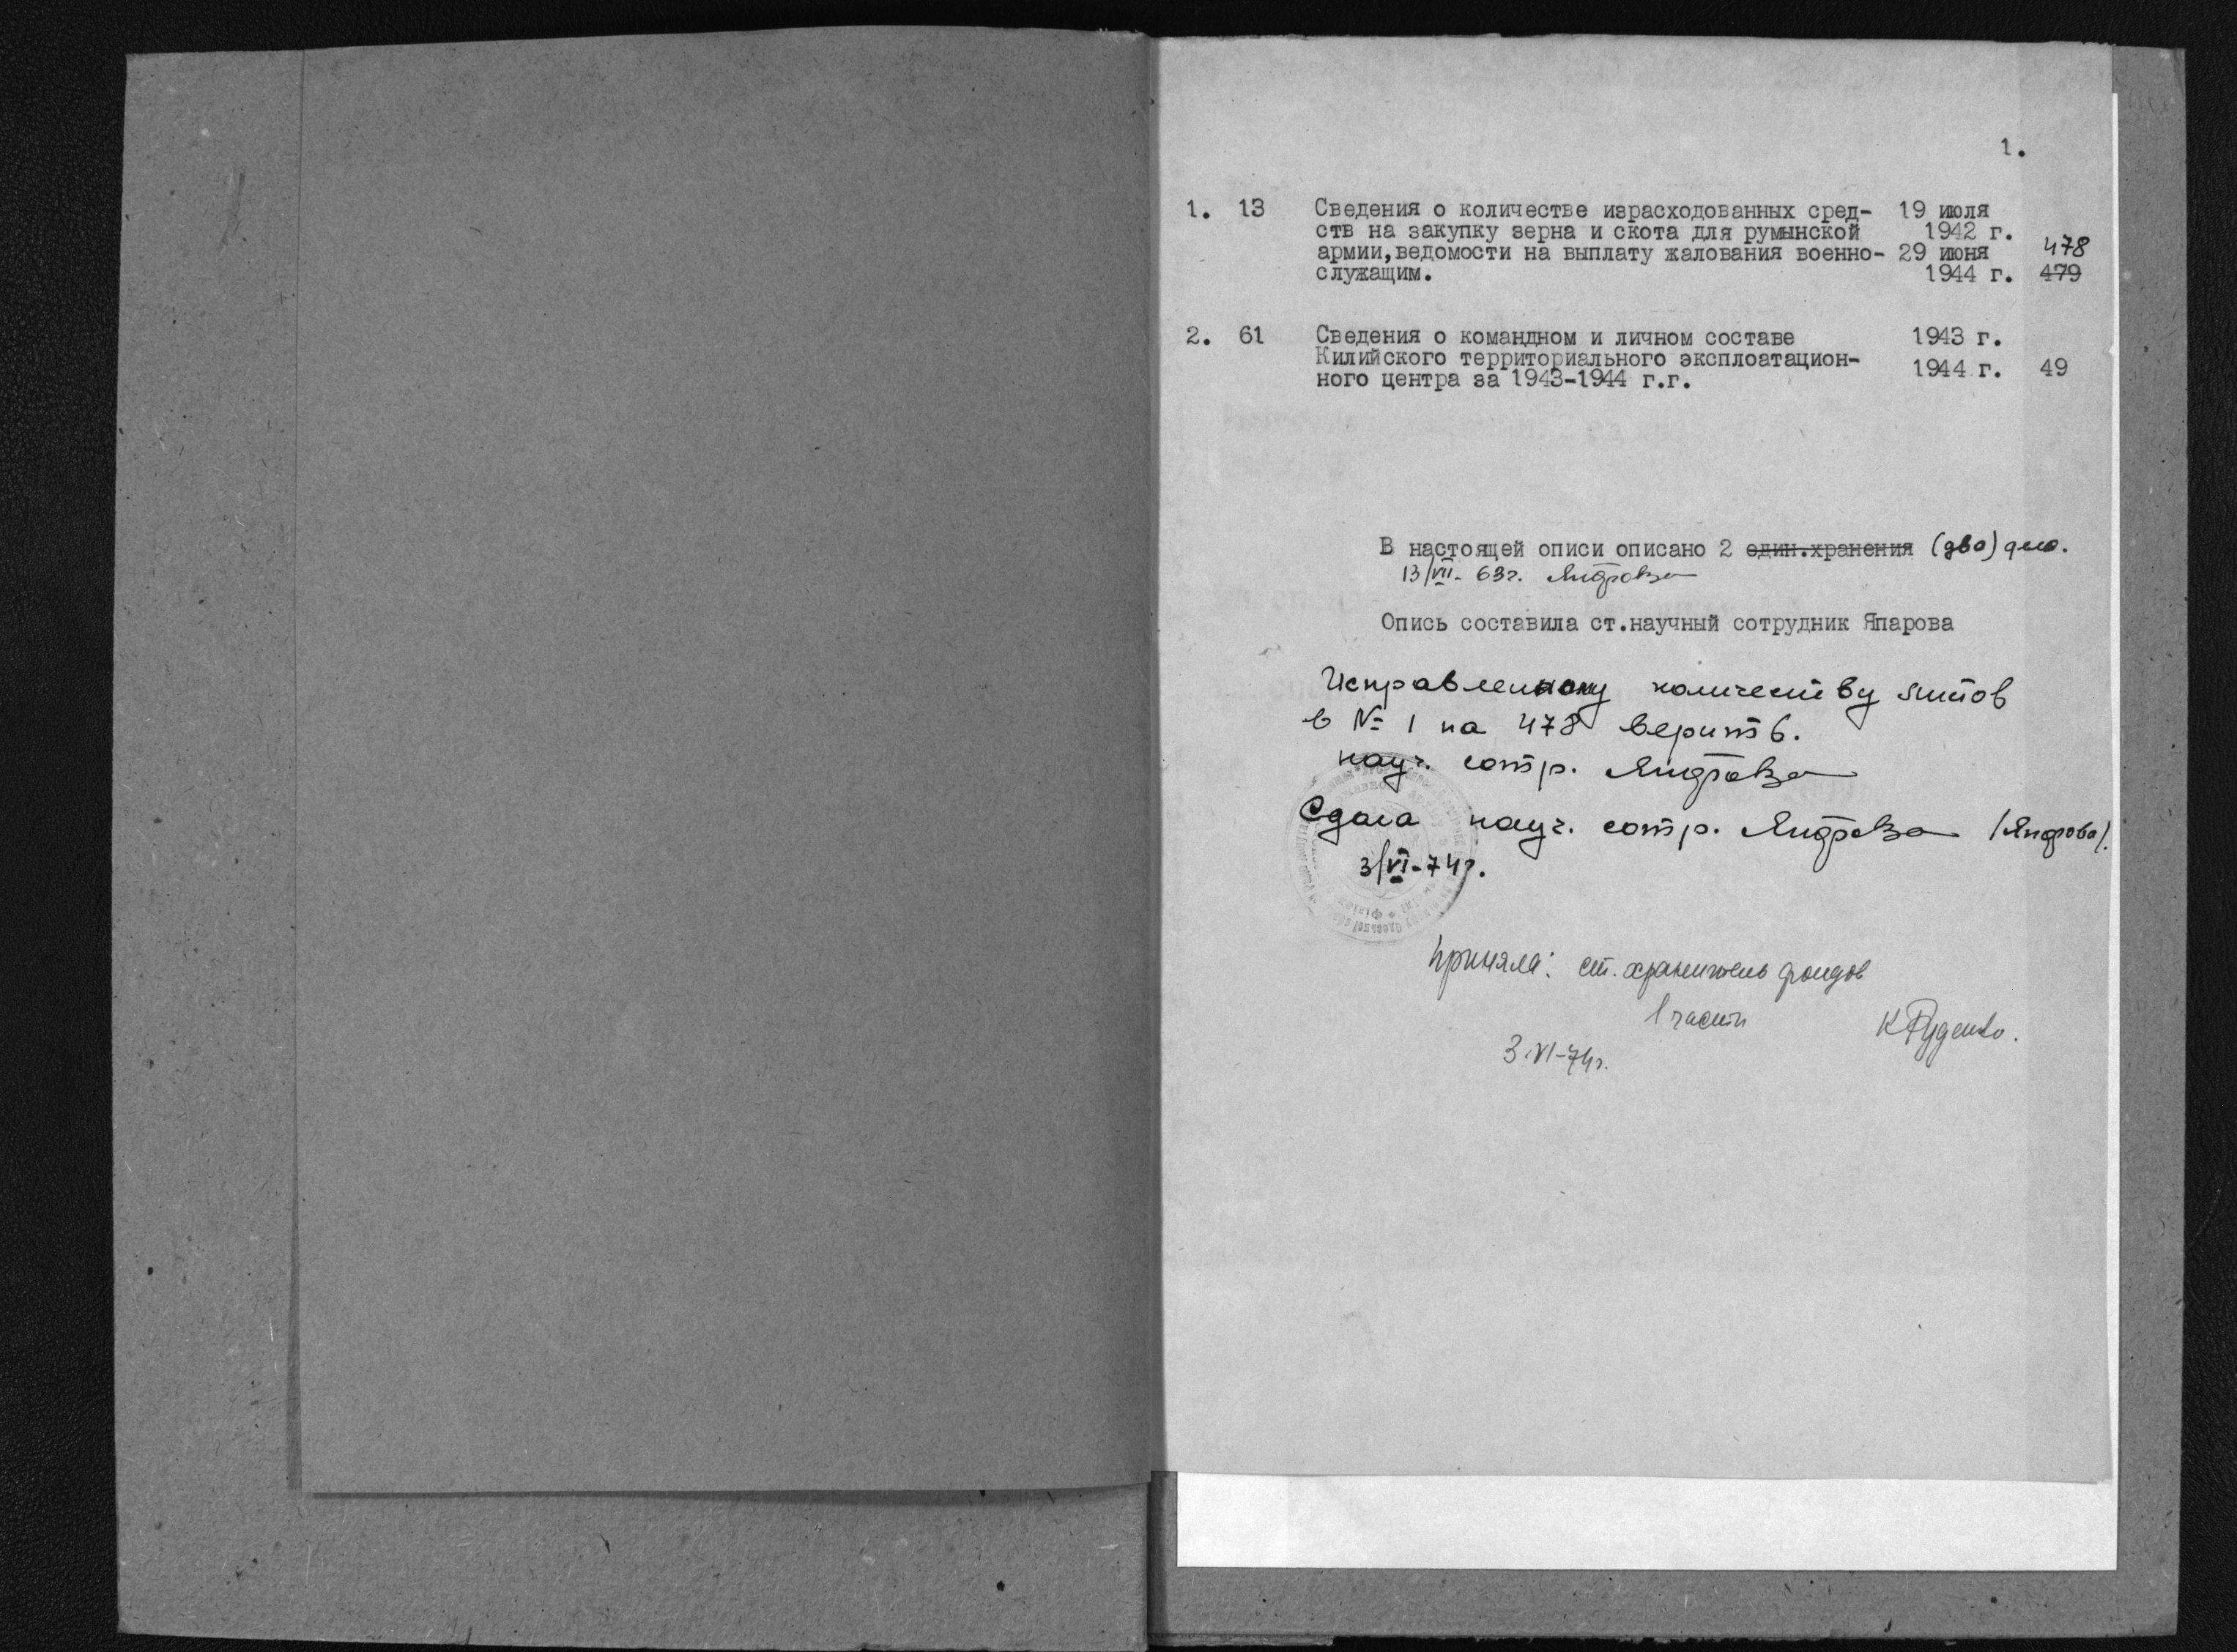 1.
1. 13 Сведения о количестве израсходованных сред- 19 июля
ств на закупку зерна и скота для румынской 1942 г.
армии,ведомости на выплату жалования военно- 29 июня 478
служащим. 1944 г. 479
2. 61 Сведения о командном и личном составе 1943 г.
Килийского территориального эксплоатацион-
1944 г. 49
ного центра за 1943-1944 г.г.
В настоящей описи описано 2 един.хранения (два) дела.
13/VII- 63г.
Опись составила ст.научный сотрудник Япарова
Исправленному количеству листов
в № 1 на 478 верить.
науч. сотр.
Сдала науч. сотр.
3/VI-74г.
Приняла: ст. хранитель фондов
1 части КРуденко.
3.VI-74г.